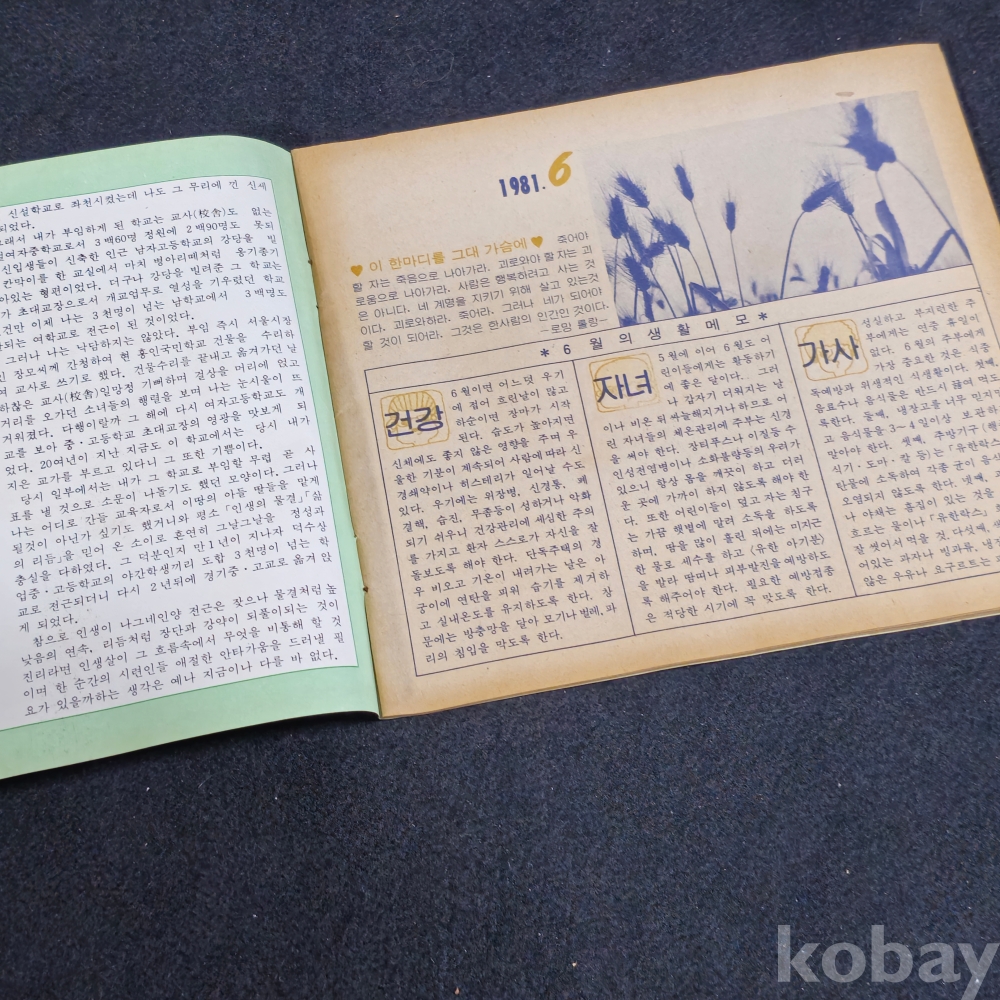 신설학교로 좌천시켰는데 나도 그 무리에 낀 신세
되었다.
그래서 내가 부임하게 된 학교는 교사(校舍)도 없는
여자중학교로서 3백60명 정원에 2백90명도 못되
신입생들이 신축한 인근 남자고등학교의 강당을 빌
칸막이를 한 교실에서 마치 병아리떼처럼 옹기종기
아있는 형편이었다. 더구나 강당을 빌려준 그 학교는
가 초대교장으로서 개교업무로 열성을 기우렸던 학교
건만 이제 나는 3천명이 넘는 남학교에서 3백명도
되는 여학교로 전근이 된 것이었다.
그러나 나는 낙담하지는 않았다. 부임 즉시 서울시장
인 장모씨께 간청하여 현 홍인국민학교 건물을 수리하
여 교사로 쓰기로 했다. 건물수리를 끝내고 옮겨가던 날
하찮은 교사(校舍)일망정 기뻐하며 걸상을 머리에 얹고
거리를 오가던 소녀들의 행렬을 보며 나는 눈시울이 뜨
거워졌다. 다행이랄까 그 해에 다시 여자고등학교도 개
교를 보아 중·고등학교 초대교장의 영광을 맛보게 되
었다. 20여년이 지난 지금도 이 학교에서는 당시 내가
지은 교가를 부르고 있다니 그 또한 기쁨이다.
당시 일부에서는 내가 그 학교로 부임할 무렵 곧 사
표를 낼 것으로 소문이 나돌기도 했던 모양이다. 그러나
나는 어디로 간들 교육자로서 이땅의 아들 딸들을 맡게
될것이 아닌가 싶기도 했거니와 평소 「인생의 물결」「삶
의 리듬」을 믿어 온 소이로 흔연히 그날그날을 정성과
충실을 다하였다. 그 덕분인지 만1년이 지나자 덕수상
업중·고등학교의 야간학생끼리 도합 3천명이 넘는 학
교로 전근되더니 다시 2년뒤에 경기중·고교로 옮겨 앉
게 되었다.
참으로 인생이 나그네인양 전근은 잦으나 물결처럼 높
낮음의 연속, 리듬처럼 장단과 강약이 되풀이되는 것이
진리라면 인생살이 그 흐름속에서 무엇을 비통해 할 것
이며 한 순간의 시련인들 애절한 안타가움을 드러낼 필
요가 있을까하는 생각은 예나 지금이나 다를 바 없다.
1981. 6
♥ 이 한마디를 그대 가슴에 ♥ 죽어야
할 자는 죽음으로 나아가라. 괴로와야 할 자는 괴
로움으로 나아가라. 사람은 행복하려고 사는 것
은 아니다. 네 계명을 지키기 위해 살고 있는것
이다. 괴로와하라. 죽어라. 그러나 네가 되어야
할 것이 되어라. 그것은 한사람의 인간인 것이다.
—로망 롤랑—
* 6 월의 생활메모 *
건강
6월이면 어느덧 우기
에 접어 흐린날이 많고
하순이면 장마가 시작
된다. 습도가 높아지면
신체에도 좋지 않은 영향을 주며 우
울한 기분이 계속되어 사람에 따라 신
경쇠약이나 히스테리가 일어날 수도
있다. 우기에는 위장병, 신경통, 폐
결핵, 습진, 무좀등이 성하거나 악화
되기 쉬우니 건강관리에 세심한 주의
를 가지고 환자 스스로가 자신을 잘
돌보도록 해야 한다. 단독주택의 경
우 비오고 기온이 내려가는 날은 아
궁이에 연탄을 피워 습기를 제거하
고 실내온도를 유지하도록 한다. 창
문에는 방충망을 달아 모기나 벌레, 파
리의 침입을 막도록 한다.
자녀
5월에 이어 6월도 어
린이들에게는 활동하기
에 좋은 달이다. 그러
나 갑자기 더워지는 날
이나 비온 뒤 싸늘해지거나 하므로 어
린 자녀들의 체온관리에 주부는 신경
을 써야 한다. 장티푸스나 이질등 수
인성전염병이나 소화불량등의 우려가
있으니 항상 몸을 깨끗이 하고 더러
운 곳에 가까이 하지 않도록 해야 한
다. 또한 어린이들이 덮고 자는 침구
는 가끔 햇볕에 말려 소독을 하도록
하며, 땀을 많이 흘린 뒤에는 미지근
한 물로 세수를 하고 〈유한 아기분〉
을 발라 땀띠나 피부발진을 예방하도
록 해주어야 한다. 필요한 예방접종
은 적당한 시기에 꼭 맞도록 한다.
가사
성실하고 부지런한 주
부에게는 연중 휴일이
없다. 6월의 주부에게
가장 중요한 것은 식중
독예방과 위생적인 식생활이다. 첫째,
음료수나 음식물은 반드시 끓여 먹도
록한다. 둘째, 냉장고를 너무 믿지
고 음식물을 3~4일이상 보관하
말아야 한다. 셋째, 주방기구(행
식기·도마·칼 등)는 「유한락
탄물에 소독하여 각종 균이 음식
오염되지 않도록 한다. 넷째,
나 야채는 흠집이 있거나
흐르는 물이나 「유한락스」
잘 씻어서 먹을 것, 다섯째,
어있는 과자나 빙과류, 냉
않은 우유나 요구르트는
kobay